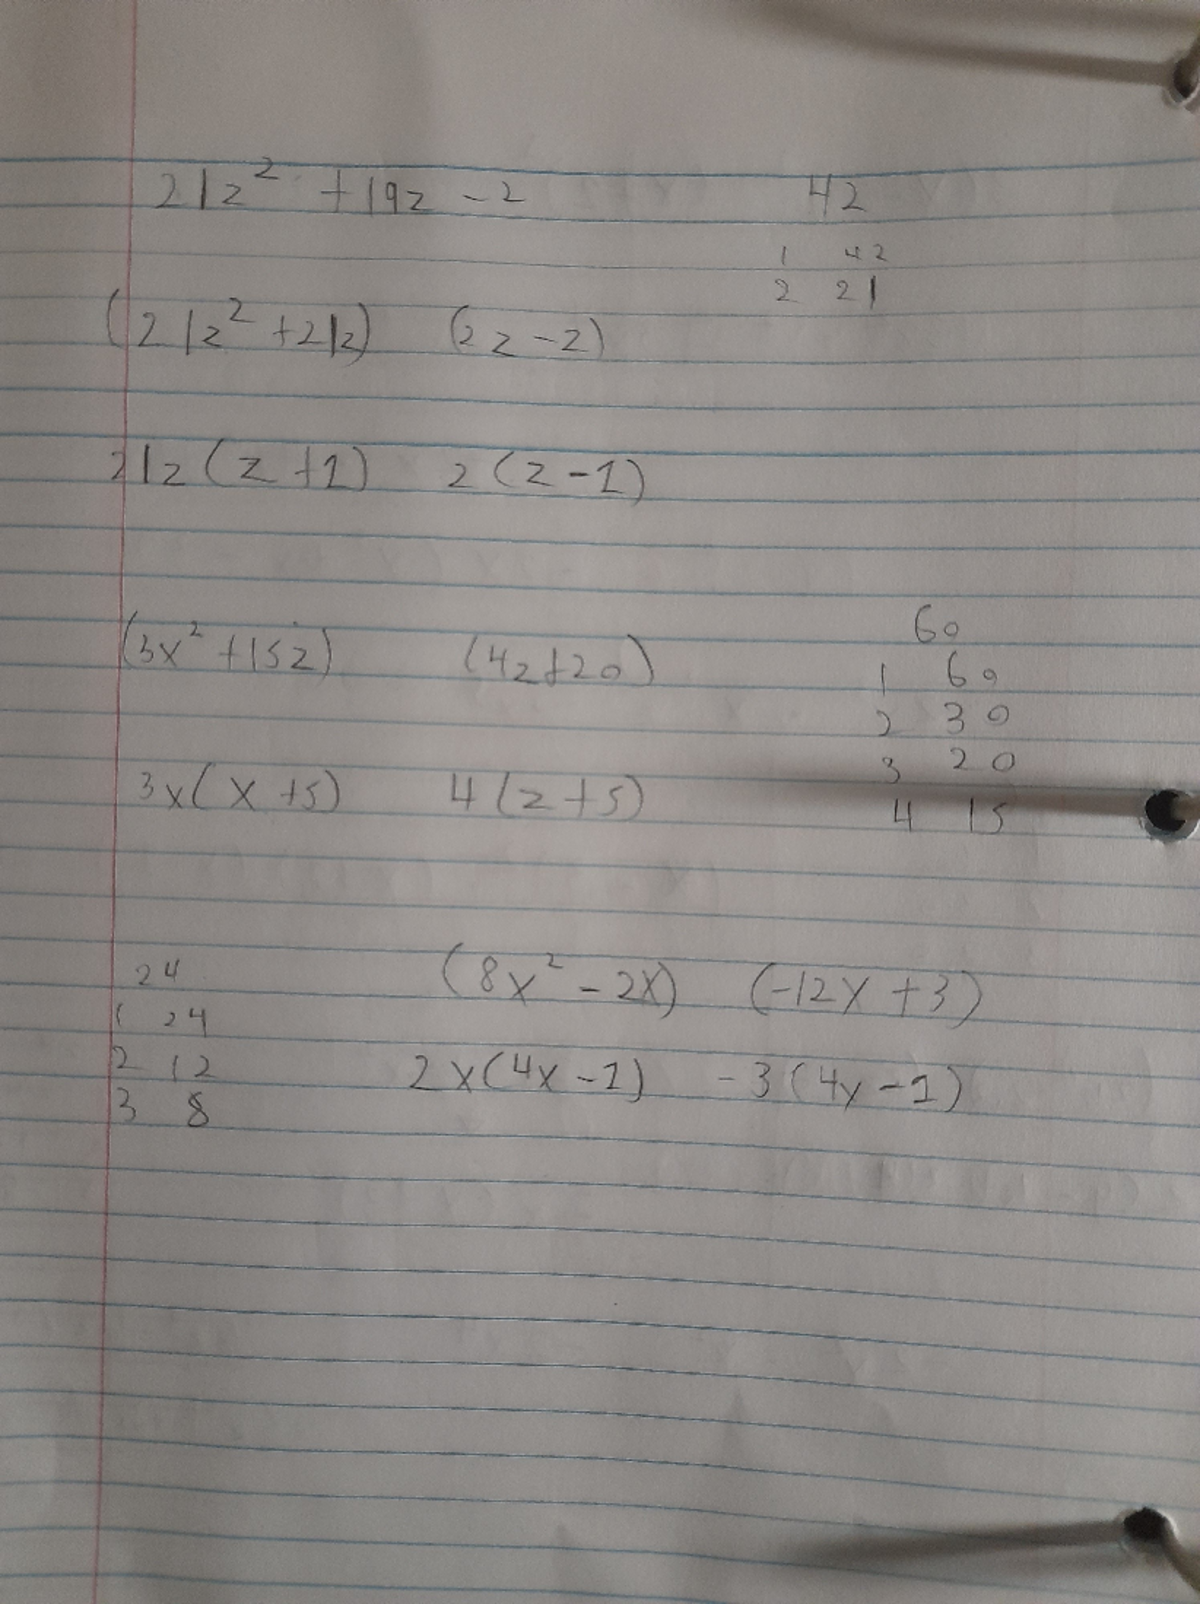 21z² + 19z - 2 42
1 42
2 21
(21z² + 21z) (2z - 2)
21z(z + 1) 2(z - 1)
60
(3x² + 15z) (4z + 20)
1 60
2 30
3 20
3x(x + 5) 4(z + 5)
4 15
24 (8x² - 2x) (-12x + 3)
1 24
2 12 2x(4x - 1) -3(4y - 1)
3 8